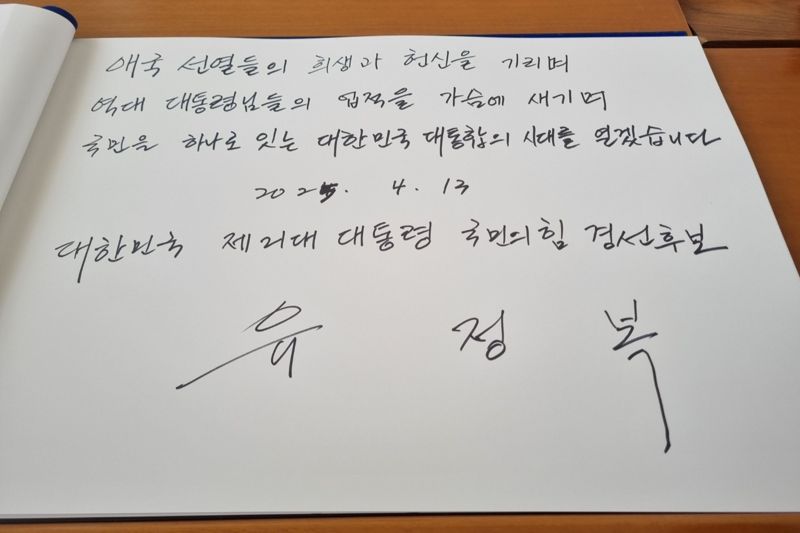 애국 선열들의 희생과 헌신을 기리며
역대 대통령님들의 업적을 가슴에 새기며
국민을 하나로 잇는 대한민국 대통합의 시대를 열겠습니다
2025. 4. 13
대한민국 제21대 대통령 국민의힘 경선후보
유 정 복